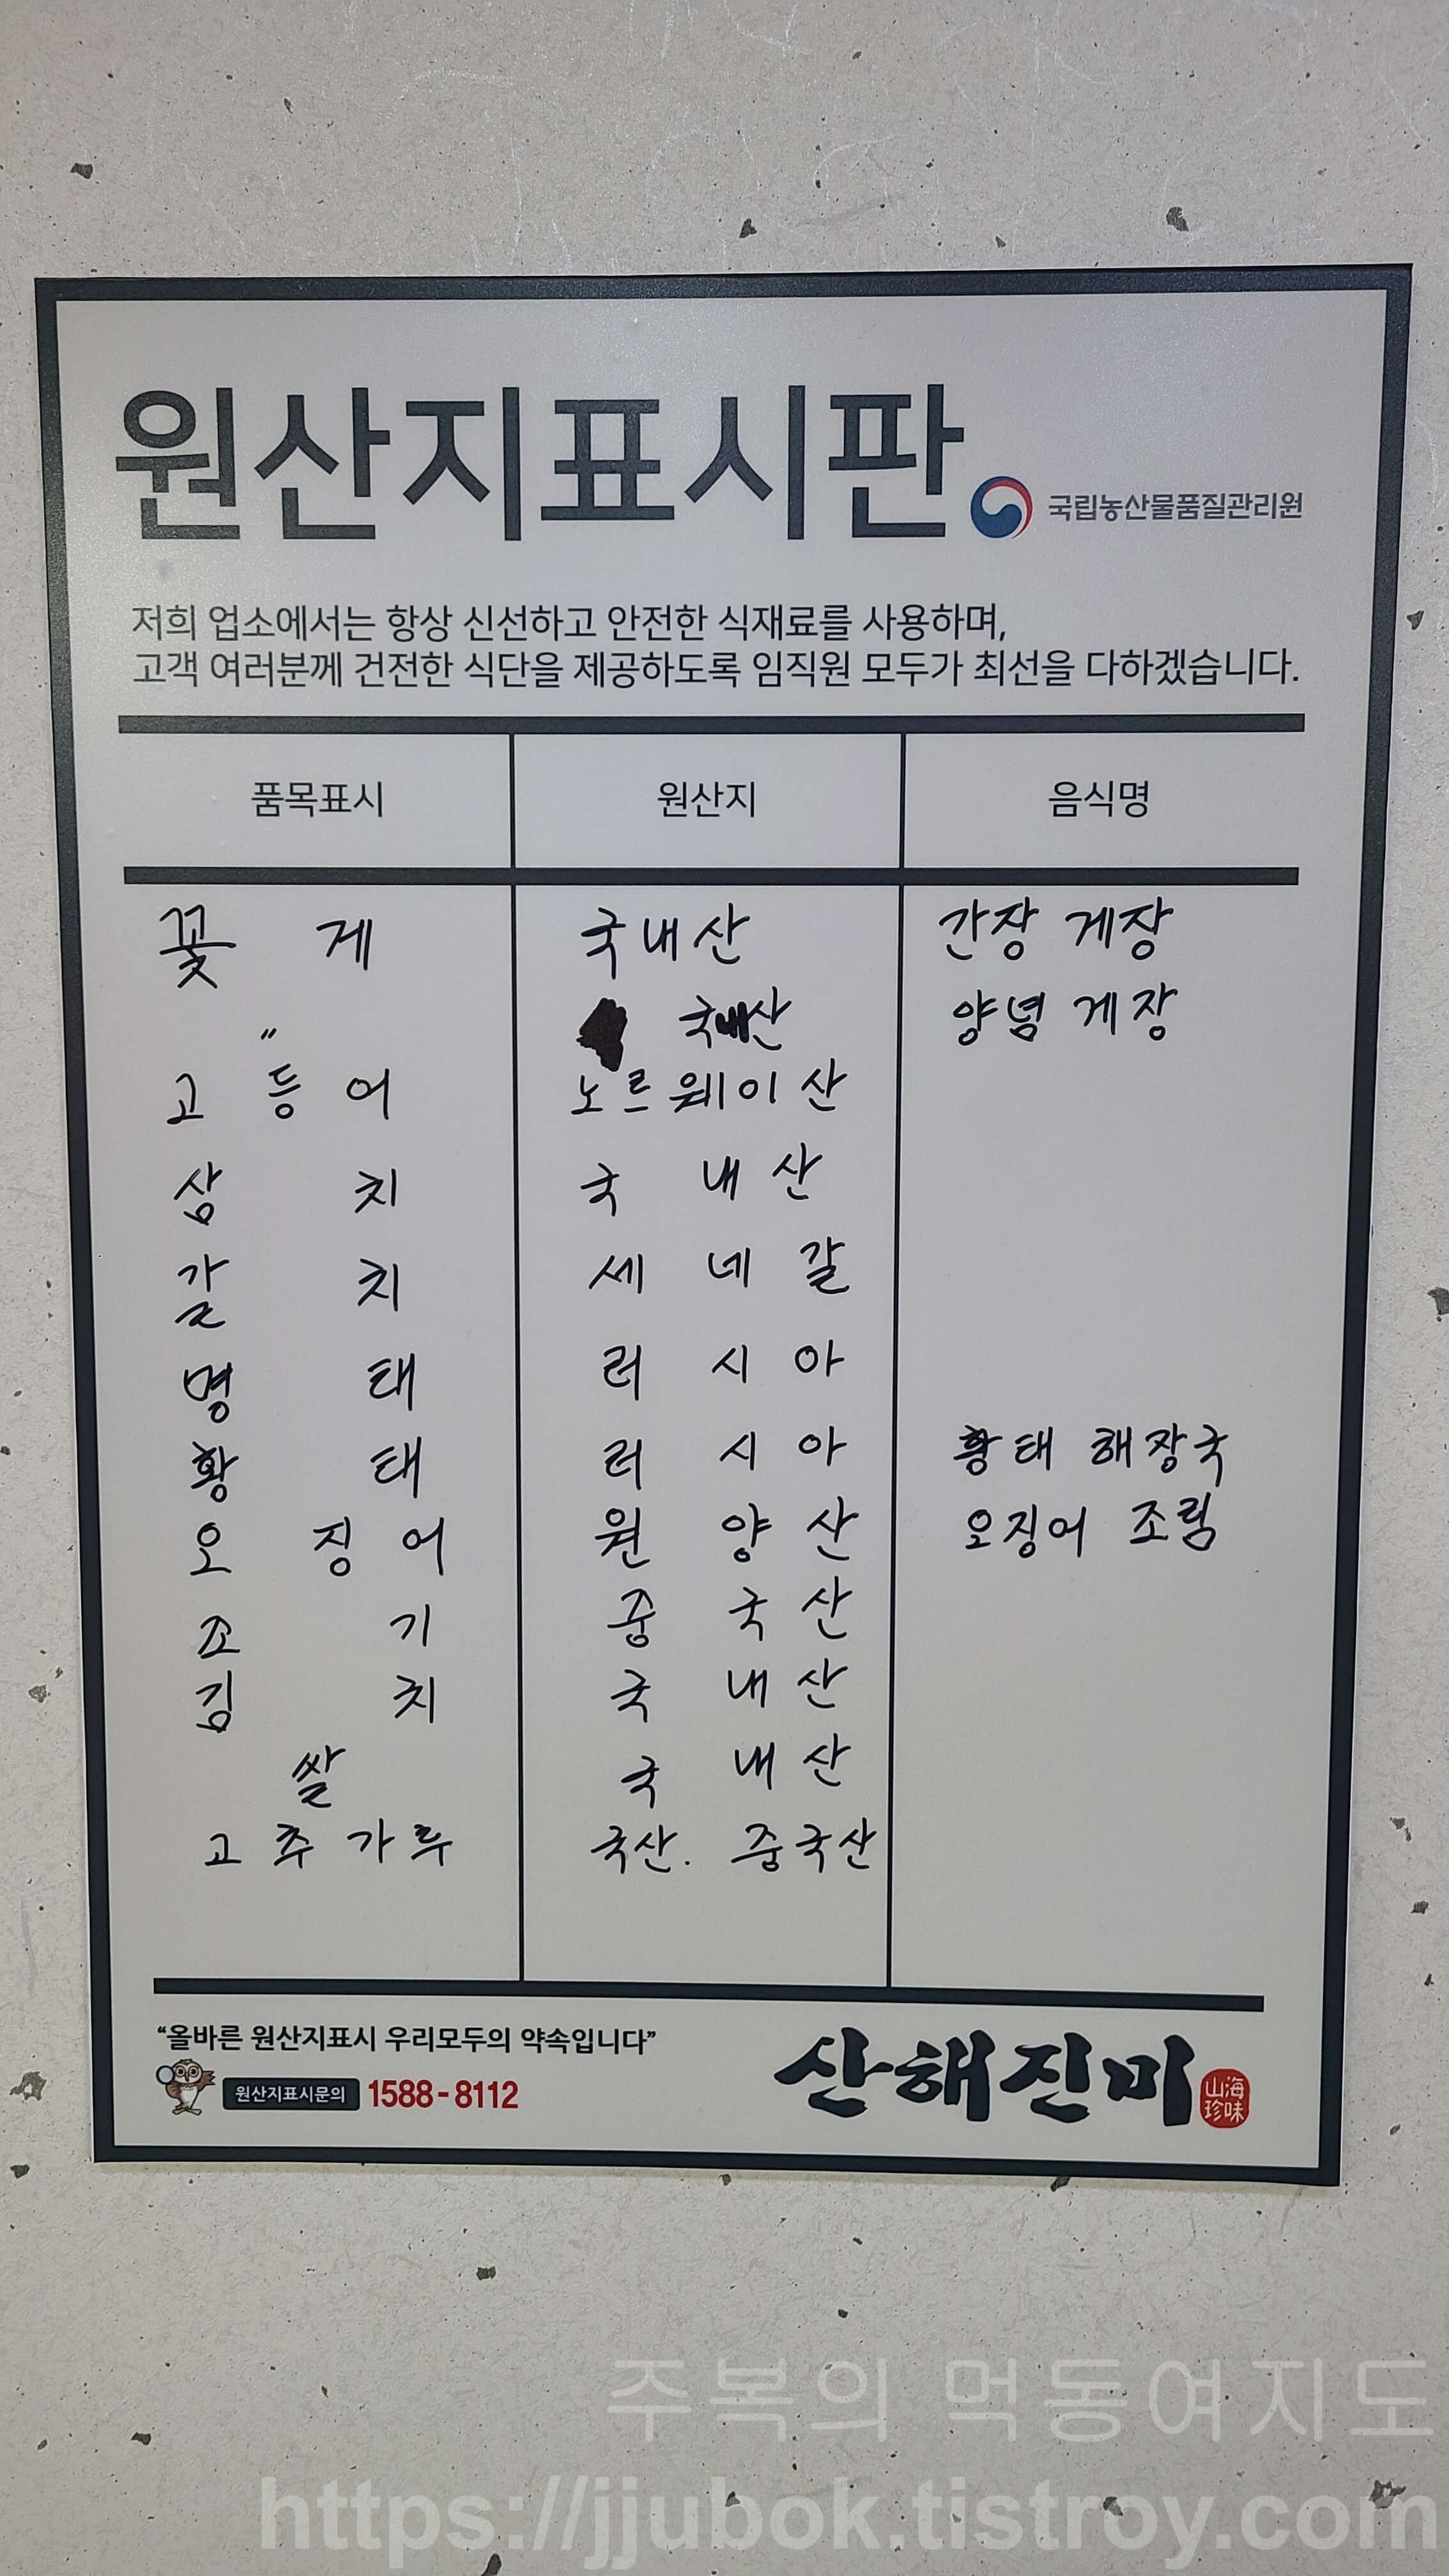 원산지표시판
국립농산물품질관리원
저희 업소에서는 항상 신선하고 안전한 식재료를 사용하며,
고객 여러분께 건전한 식단을 제공하도록 임직원 모두가 최선을 다하겠습니다.
품목표시 원산지 음식명
꽃게 국내산 간장 게장
〃 국내산 양념 게장
고등어 노르웨이산
삼치 국내산
갈치 세네갈
명태 러시아
황태 러시아 황태 해장국
오징어 원양산 오징어 조림
조기 중국산
김치 국내산
쌀 국내산
고추가루 국산. 중국산
“올바른 원산지표시 우리모두의 약속입니다”
원산지표시문의 1588-8112
산해진미 山海珍味
주복의 먹동여지도
https://jjubok.tistroy.com